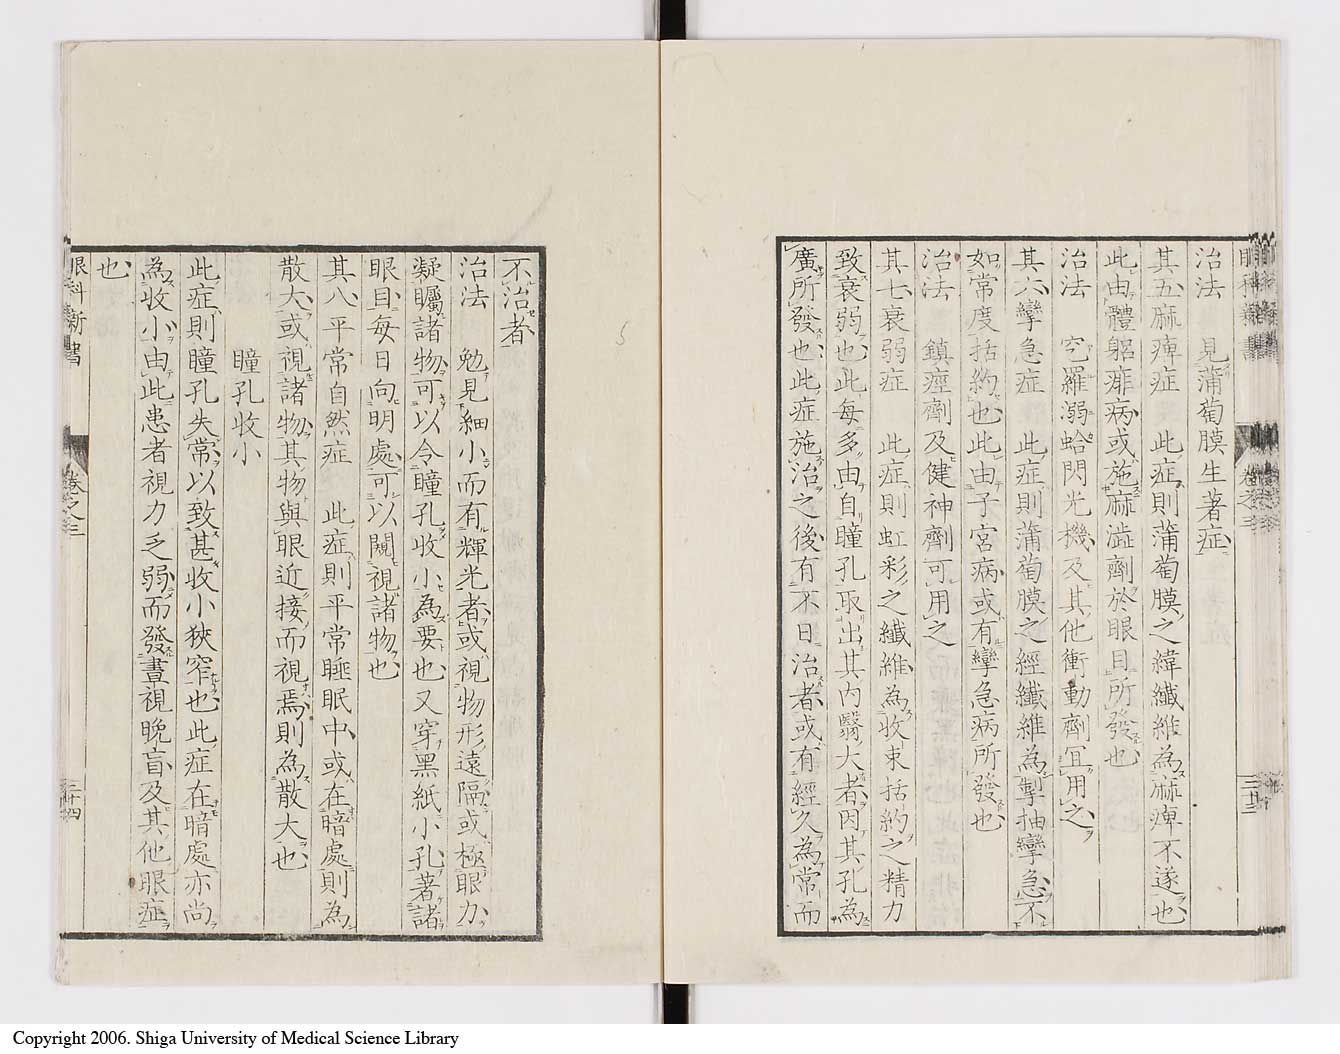 治法　見蒲萄膜生著症
其五麻痺症　此症則蒲萄膜之緯纖維為麻痺不遂也
此由體軀痱病或施麻澁劑於眼目所發也
治法　究羅溺蛤閃光機及其他衝動劑冝用之
其六攣急症　此症則蒲萄膜之經纖維為掣抽攣急不
如常度括約也此由子宮病或有攣急病所發也
治法　鎮痙劑及健神劑可用之
其七衰弱症　此症則虹彩之纖維為收束括約之精力
致衰弱也此每多由自瞳孔取出其内翳大者因其孔為
廣所發也此症施治之後有不日治者或有經久為常而
不治者
治法　勉見細小而有輝光者或視物形遠隔或極眼力
凝矚諸物可以令瞳孔收小為要也又穿黑紙小孔著諸
眼目每日向明處可以閲視諸物也
其八平常自然症　此症則平常睡眠中或在暗處則為
散大或視諸物其物與眼近接而視焉則為散大也
瞳孔收小
此症則瞳孔失常以致甚收小狹窄也此症在暗處亦尚
為收小由此患者視力乏弱而發晝視晩盲及其他眼症
也
眼科新書
卷之三
三十四
Copyright 2006. Shiga University of Medical Science Library